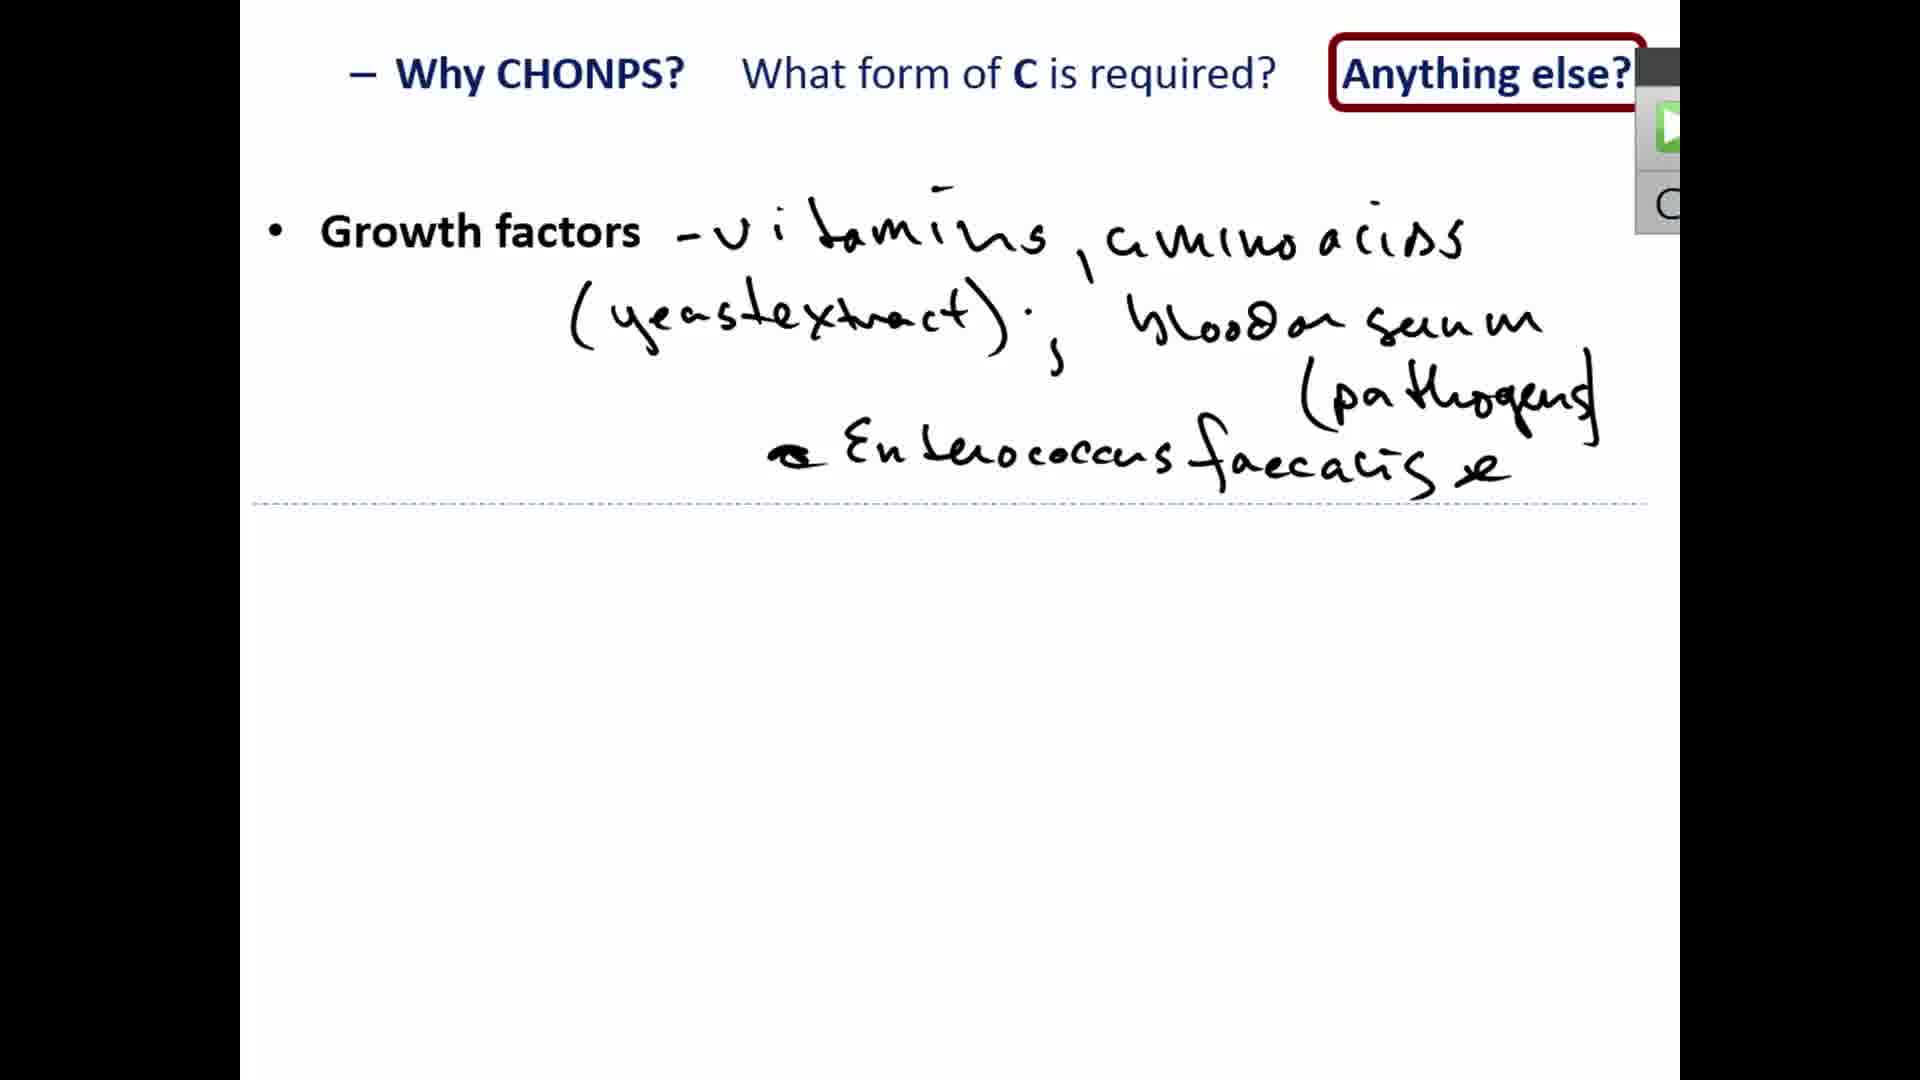 – Why CHONPS? What form of C is required? Anything else?
• Growth factors - vitamins, amino acids
(yeast extract); blood or serum
(pathogens)
- Enterococcus faecalis